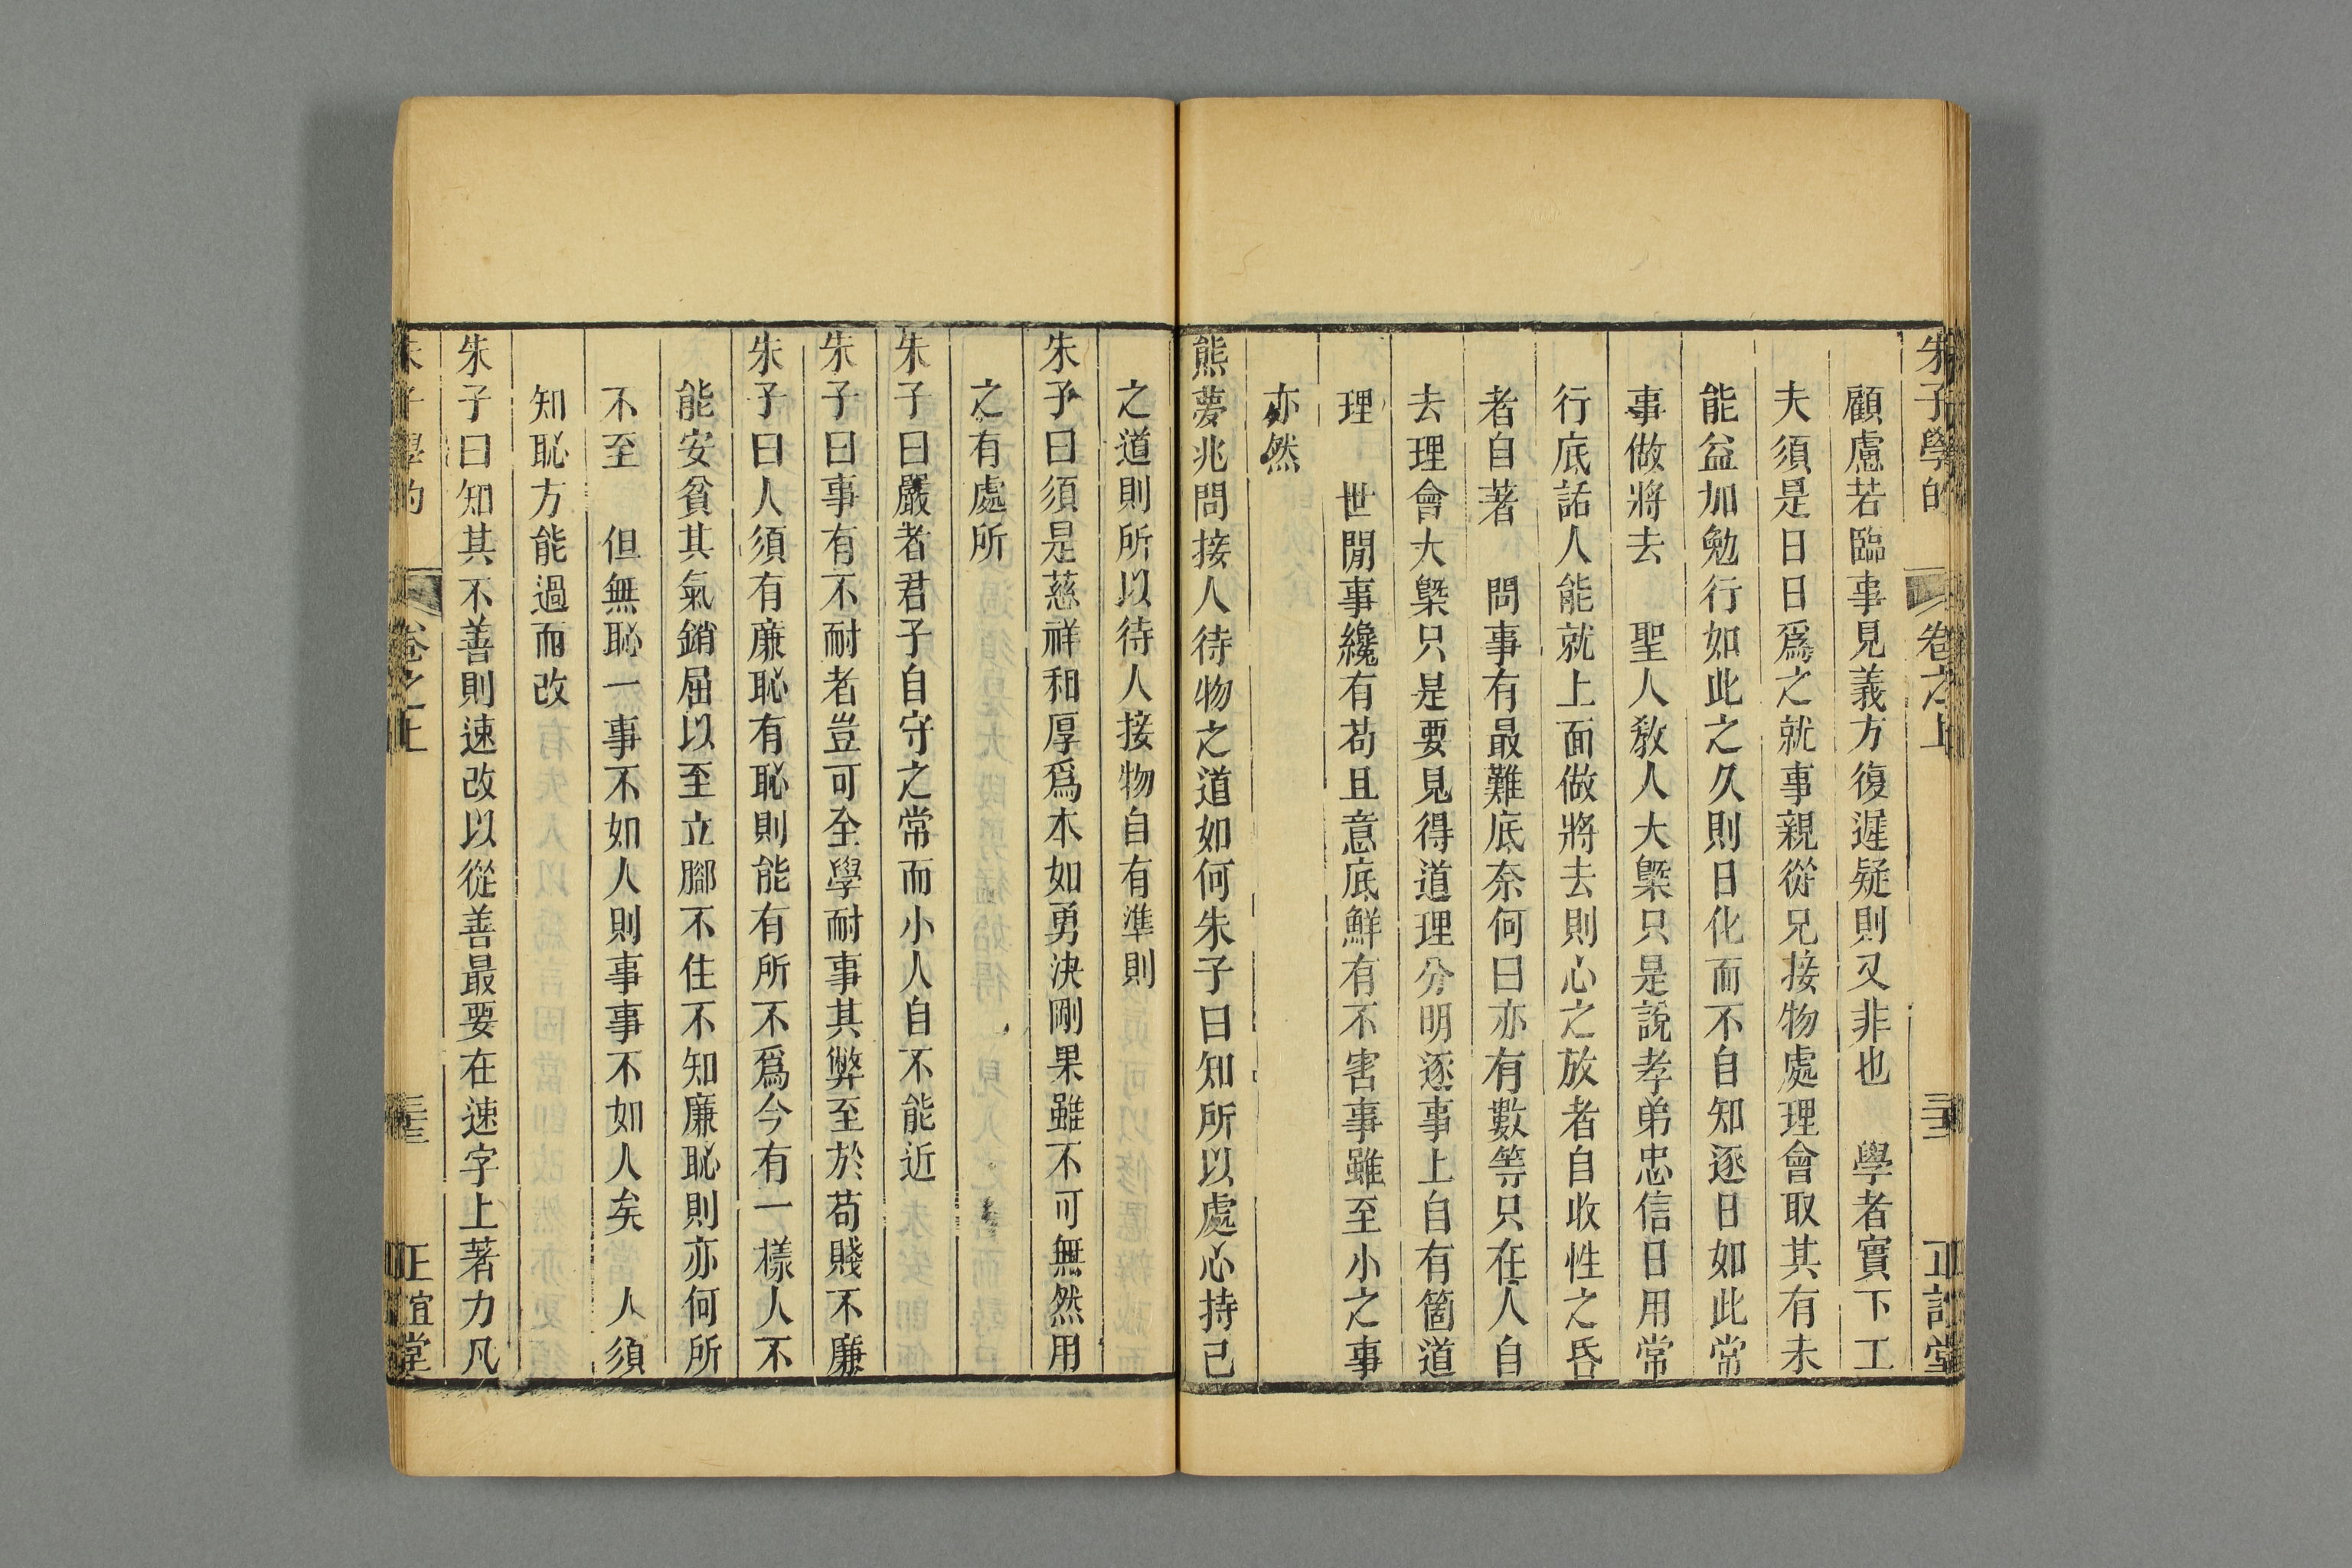 朱子學的 卷之上 正誼堂
顧慮若臨事見義方復遲疑則又非也　學者實下工
夫須是日日爲之就事親從兄接物處理會取其有未
能益加勉行如此之久則日化而不自知逐日如此常
事做將去　聖人教人大槩只是說孝弟忠信日用常
行底話人能就上面做將去則心之放者自收性之昏
者自著　問事有最難底奈何曰亦有數等只在人自
去理會大槩只是要見得道理分明逐事上自有箇道
理　世閒事纔有苟且意底鮮有不害事雖至小之事
亦然
熊夢兆問接人待物之道如何朱子曰知所以處心持己
之道則所以待人接物自有準則
朱子曰須是慈祥和厚爲本如勇決剛果雖不可無然用
之有處所
朱子曰嚴者君子自守之常而小人自不能近
朱子曰事有不耐者豈可全學耐事其弊至於苟賤不廉
朱子曰人須有廉恥有恥則能有所不爲今有一樣人不
能安貧其氣銷屈以至立腳不住不知廉恥則亦何所
不至　但無恥一事不如人則事事不如人矣　人須
知恥方能過而改
朱子曰知其不善則速改以從善最要在速字上著力凡
朱子學的 卷之上 正誼堂